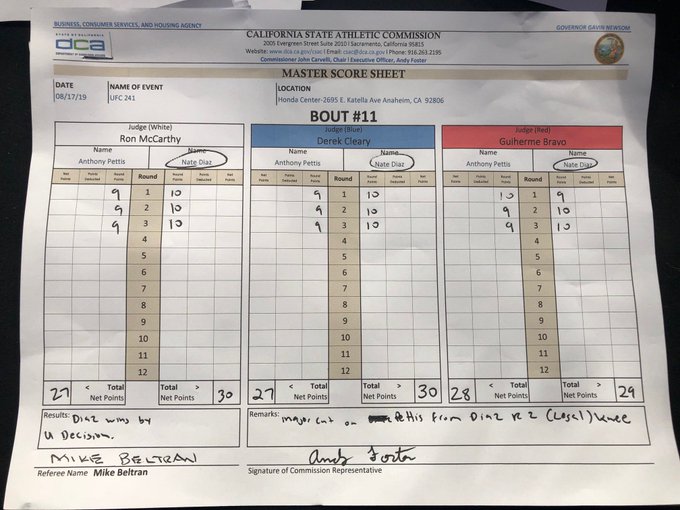 BUSINESS, CONSUMER SERVICES, AND HOUSING AGENCY
GOVERNOR GAVIN NEWSOM
STATE OF CALIFORNIA
dca
DEPARTMENT OF CONSUMER AFFAIRS
CALIFORNIA STATE ATHLETIC COMMISSION
2005 Evergreen Street Suite 2010 | Sacramento, California 95815
Website: www.dca.ca.gov/csac | Email: csac@dca.ca.gov | Phone: 916.263.2195
Commissioner John Carvelli, Chair | Executive Officer, Andy Foster
MASTER SCORE SHEET
DATE NAME OF EVENT LOCATION
08/17/19 UFC 241 Honda Center-2695 E. Katella Ave Anaheim, CA 92806
BOUT #11
Judge (White) Judge (Blue) Judge (Red)
Ron McCarthy Derek Cleary Guiherme Bravo
Name Name Name Name Name Name
Anthony Pettis Nate Diaz Anthony Pettis Nate Diaz Anthony Pettis Nate Diaz
Net Points Points Deducted Round Points Round Round Points Points Deducted Net Points Net Points Points Deducted Round Points Round Round Points Points Deducted Net Points Net Points Points Deducted Round Points Round Round Points Points Deducted Net Points
9 1 10 9 1 10 10 1 9
9 2 10 9 2 10 9 2 10
9 3 10 9 3 10 9 3 10
4 4 4
5 5 5
6 6 6
7 7 7
8 8 8
9 9 9
10 10 10
11 11 11
12 12 12
27 < Total Net Points Total > Net Points 30 27 < Total Net Points Total > Net Points 30 28 < Total Net Points Total > Net Points 29
Results: Diaz wins by
U Decision.
Remarks: major cut on Pettis from Diaz R2 (Legal) knee
MIKE BELTRAN
Andy Foster
Referee Name Mike Beltran
Signature of Commission Representative